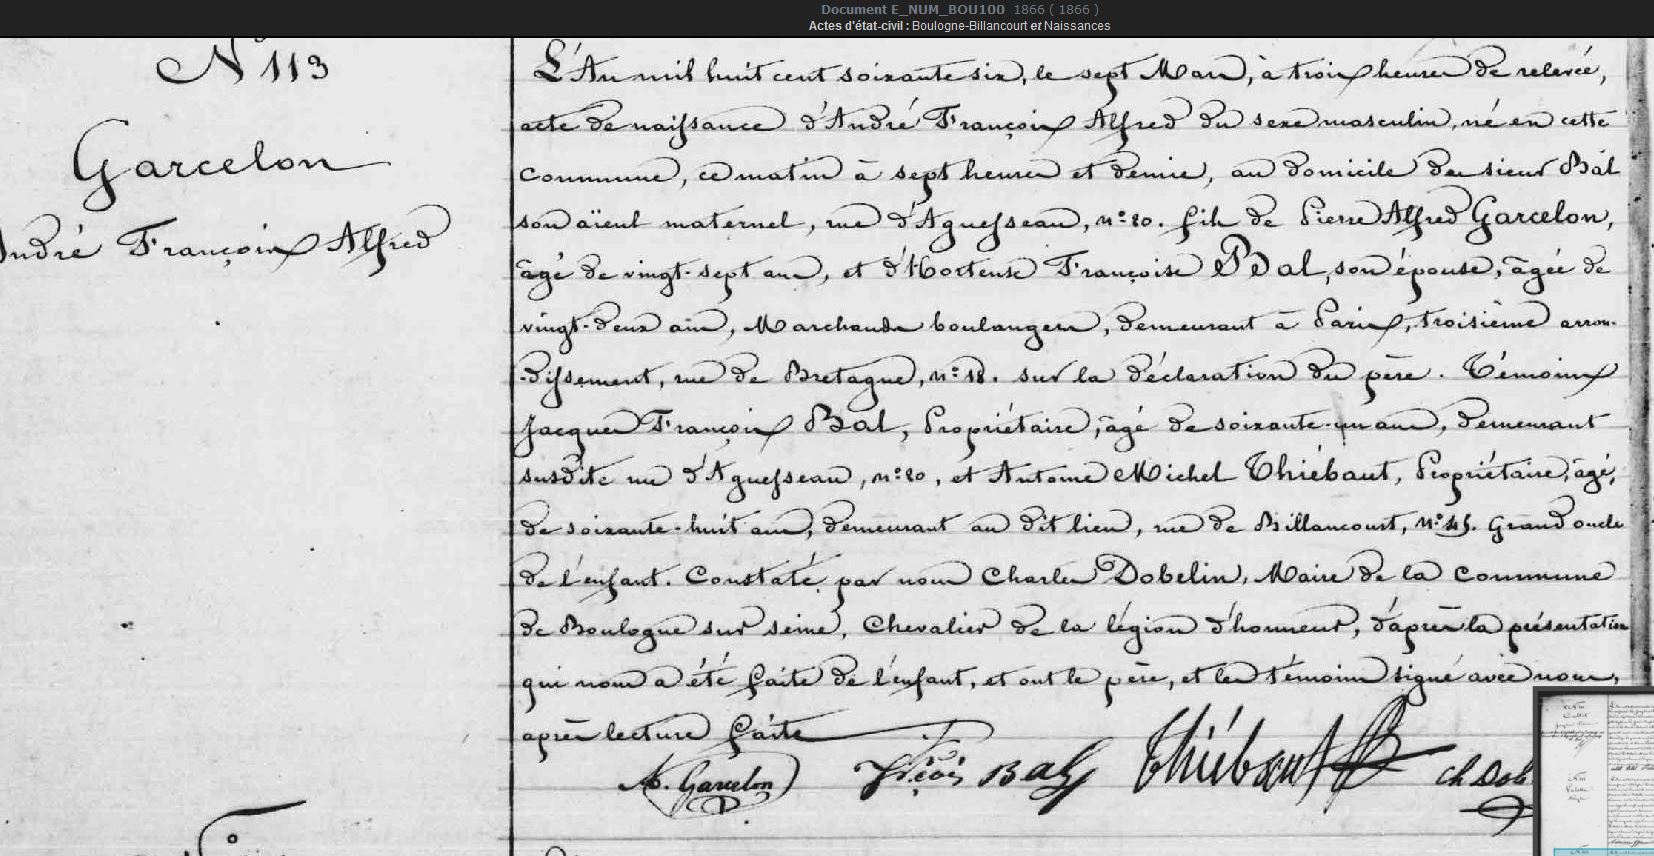 Document E_NUM_BOU100 1866 ( 1866 )
Actes d'état-civil : Boulogne-Billancourt et Naissances
N° 113
Garcelon
André François Alfred
L'An mil huit cent soixante six, le sept Mars, à trois heures de relevée,
acte de naissance d'André François Alfred du sexe masculin, né en cette
commune, ce matin à sept heures et demie, au domicile du sieur Bal
son aïeul maternel, rue d'Aguesseau, n° 80. fils de Pierre Alfred Garcelon,
âgé de vingt-sept ans, et d'Hortense Françoise Bal, son épouse, âgée de
vingt-deux ans, Marchands boulangers, demeurant à Paris, troisième arron-
dissement, rue de Bretagne, n° 18. sur la déclaration du père. Témoins
Jacques François Bal, Propriétaire, âgé de soixante-un ans, demeurant
susdite rue d'Aguesseau, n° 80, et Antoine Michel Thiébaut, Propriétaire, âgé,
de soixante-huit ans, demeurant au dit lieu, rue de Billancourt, n° 45. Grand oncle
de l'enfant. Constaté par nous Charles Dobelin, Maire de la commune
de Boulogne sur seine, Chevalier de la légion d'honneur, d'après la présentation
qui nous a été faite de l'enfant, et ont le père, et les témoins signé avec nous,
après lecture faite
A. Garcelon Fçois Bal Thiébaut Ch Dob